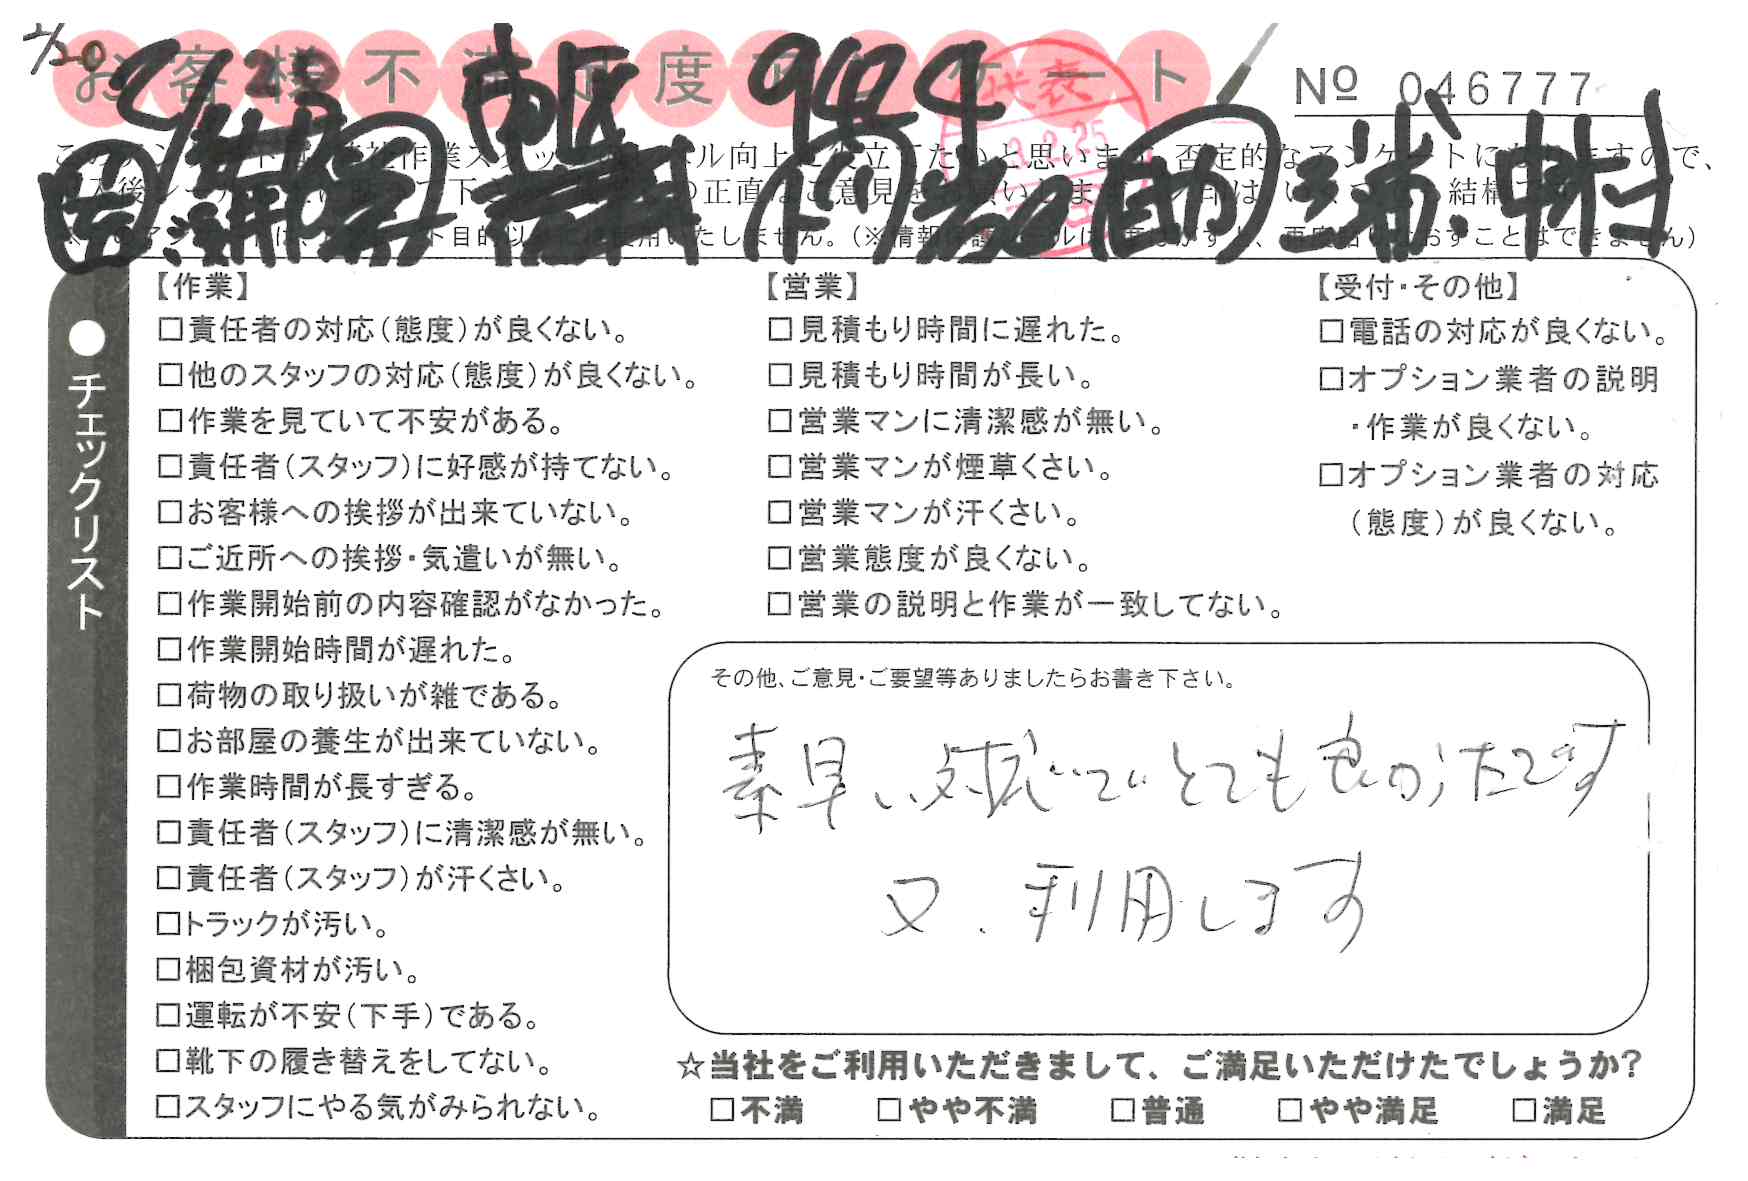 2/20
お客様不満足度アンケート
№ 046777
944
代表
2.25
助 三浦. 中村
● チェックリスト
【作業】
□責任者の対応(態度)が良くない。
□他のスタッフの対応(態度)が良くない。
□作業を見ていて不安がある。
□責任者(スタッフ)に好感が持てない。
□お客様への挨拶が出来ていない。
□ご近所への挨拶・気遣いが無い。
□作業開始前の内容確認がなかった。
□作業開始時間が遅れた。
□荷物の取り扱いが雑である。
□お部屋の養生が出来ていない。
□作業時間が長すぎる。
□責任者(スタッフ)に清潔感が無い。
□責任者(スタッフ)が汗くさい。
□トラックが汚い。
□梱包資材が汚い。
□運転が不安(下手)である。
□靴下の履き替えをしてない。
□スタッフにやる気がみられない。
【営業】
□見積もり時間に遅れた。
□見積もり時間が長い。
□営業マンに清潔感が無い。
□営業マンが煙草くさい。
□営業マンが汗くさい。
□営業態度が良くない。
□営業の説明と作業が一致してない。
【受付・その他】
□電話の対応が良くない。
□オプション業者の説明
・作業が良くない。
□オプション業者の対応
(態度)が良くない。
その他、ご意見・ご要望等ありましたらお書き下さい。
素早い対応でとても良かったです
又、利用します
☆当社をご利用いただきまして、ご満足いただけたでしょうか?
□不満 □やや不満 □普通 □やや満足 □満足